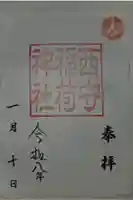 奉拝
西寺
稲荷
神社
令和八年
一月十日